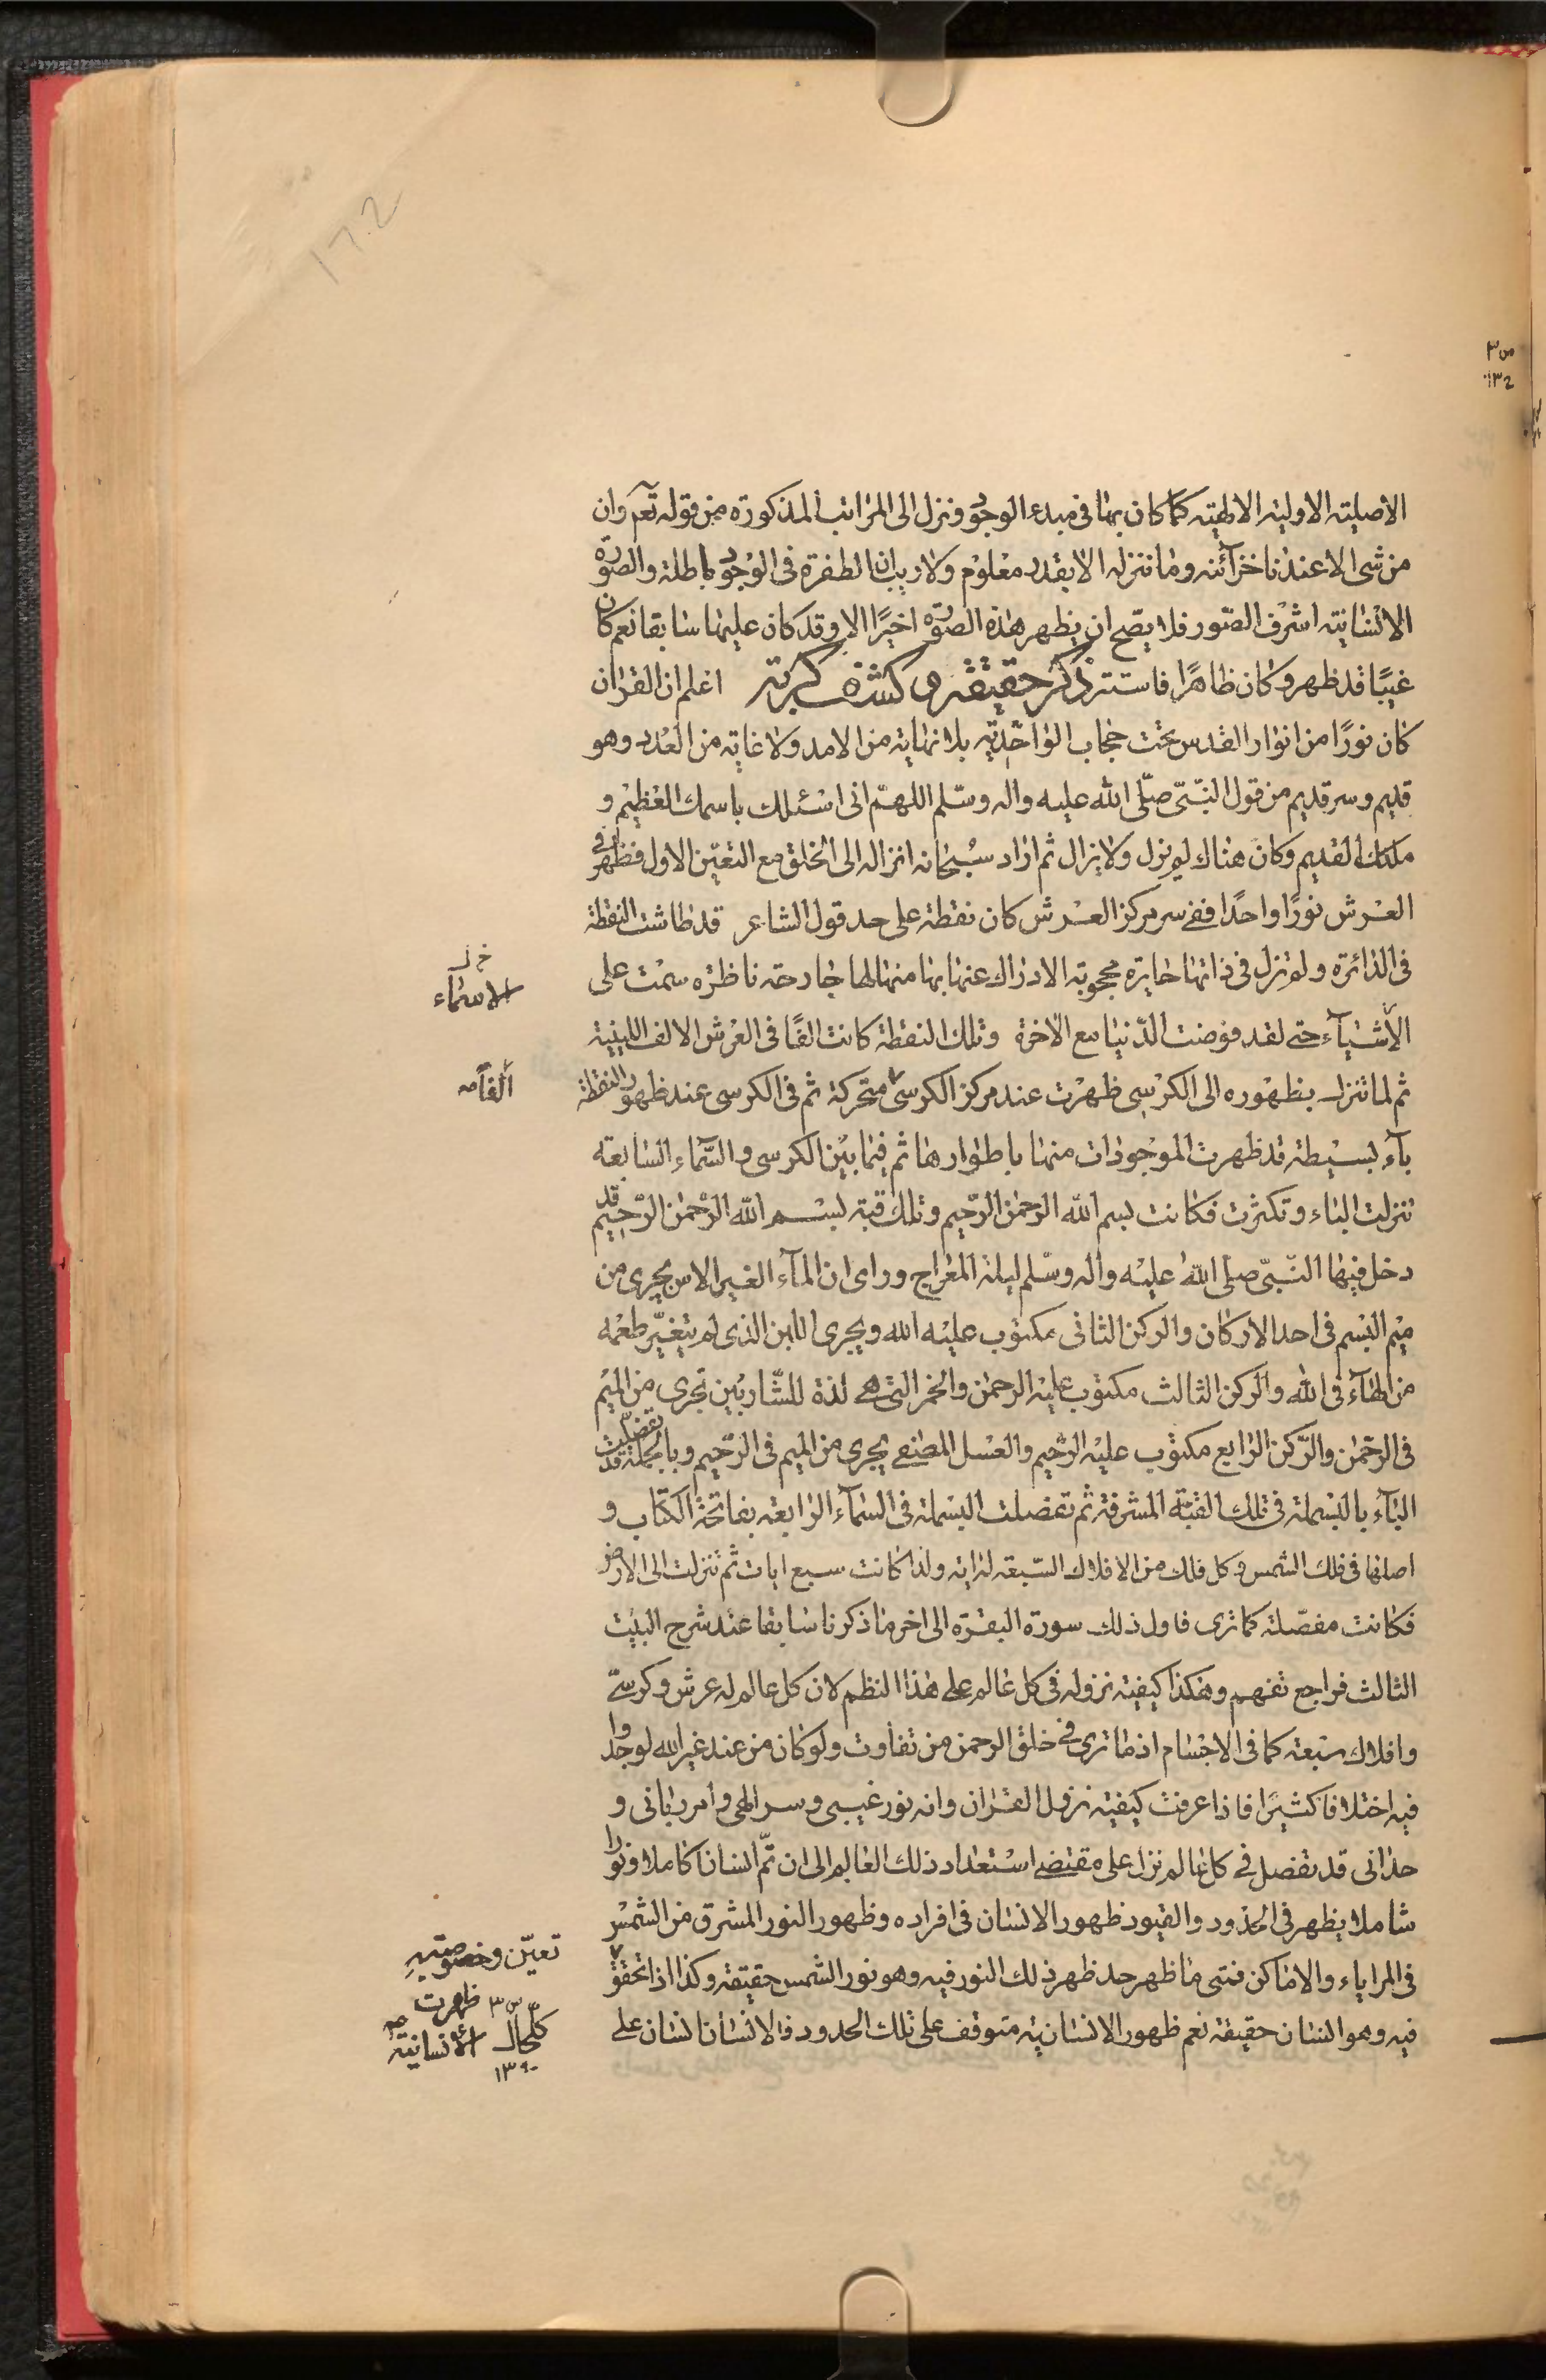 الاصلیته الاولیته الالهیته کما کان بها فی مبدء الوجود ونزل الی المراتب المذکورة من قوله تعم وان
من شی الا عندنا خزآئنه وما ننزله الا بقدر معلوم ولا ریب ان الطفرة فی الوجود باطلة والصورة
الانسانیته اشرف الصور فلا یصح ان یظهر هذه الصورة اخیرًا الا وقد کان علیها سابقا نعم کان
غیبًا فقد ظهر وکان ظاهرًا فاستتر ذکر حقیقة وکشف اعلم ان القران
کان نورًا من انوار القدس تحت حجاب الواحدیّه بلا نهایته من الامد ولا غایته من العدد وهو
قدیم وسر قدیم من قول النّبیّ صلّی الله علیه واله وسلّم اللهمّ انی اسئلك باسمك العظیم و
ملكك القدیم وکان هناك لم یزل ولا یزال ثم اراد سبحانه انزاله الی الخلق مع التعیّن الاول فظهر فی
العرش نورًا واحدًا ففی سر مرکز العرش کان نقطة علی حد قول الشاعر قد طاشت النقطة
فی الدائرة ولم تزل فی ذاتها حایرة محجوبة الادراك عنها بها منها لها جارحة ناظره سمت علی
خ ل
الاسماء
الأشیآء حتی لقد فوضت الدّنیا مع الاخرة وتلك النقطة کانت الفًا فی العرش الالف اللینیة
ثم لما تنزل بظهوره الی الکرسی ظهرت عند مرکز الکرسی متحرکة ثم فی الکرسی عند ظهور النقطة
الفًا صه
بآء بسیطة قد ظهرت الموجودات منها باطوارها ثم فیما بین الکرسی والسّماء السّابعة
تنزلت الباء وتکثرت فکانت بسم الله الرحمن الرّحیم وتلك قبة بسم الله الرّحمن الرّحیم قد
دخل فیها النّبیّ صلی الله علیه واله وسلّم لیلة المعراج ورای ان المآء الغیر الاسن یجری من
میم البسم فی احد الارکان والرکن الثانی مکتوب علیه الله ویجری اللبن الذی لم یتغیّر طعمه
من الهآء فی الله والرکن الثالث مکتوب علیه الرحمن والخمر التی هی لذة للشّاربین تجری من المیم
فی الرحمن والرّکن الرابع مکتوب علیه الرّحیم والعسل المصفی یجری من المیم فی الرّحیم وبالجملة قد تفصّلت
البآء بالبسملة فی تلك القبّة المشرفة ثم تفصلت البسملة فی السّمآء الرابعة بفاتحة الکتاب و
اصلها فی فلك الشمس وکل فلك من الافلاك السّبعة له ایه ولذا کانت سبع ایات ثم تنزلت الی الارض
فکانت مفصّلة کما تری فاول ذلك سورة البقرة الی اخر ما ذکرنا سابقا عند شرح البیت
الثالث فراجع تفهم وهکذا کیفیته نزوله فی کل عالم علی هذا النظم لان کل عالم له عرش وکرسی
وافلاك سبعة کما فی الاجسام اذ ما تری فی خلق الرحمن من تفاوت ولو کان من عند غیر الله لوجدوا
فیه اختلافا کثیرًا فاذا عرفت کیفیته نزول القران وانه نور غیبی وسر الهی وامر ربانی و
حدانی قد تفصل فی کل عالم نزل علی مقتضی استعداد ذلك العالم الی ان تمّ انسانا کاملا ونورا
شاملا یظهر فی الحدود والقیود ظهور الانسان فی افراده وظهور النور المشرق من الشمس
فی المرایاء والاماکن فمتی ما ظهر حد ظهر ذلك النور فیه وهو نور الشمس حقیقة وکذا اذا تحقق
تعیّن وخصوصیته
ظهرت
الانسانیته
فیه وهو انسان حقیقة نعم ظهور الانسانیته متوقف علی تلك الحدود فالانسان انسان علی
کلحال
۱۳۹۰